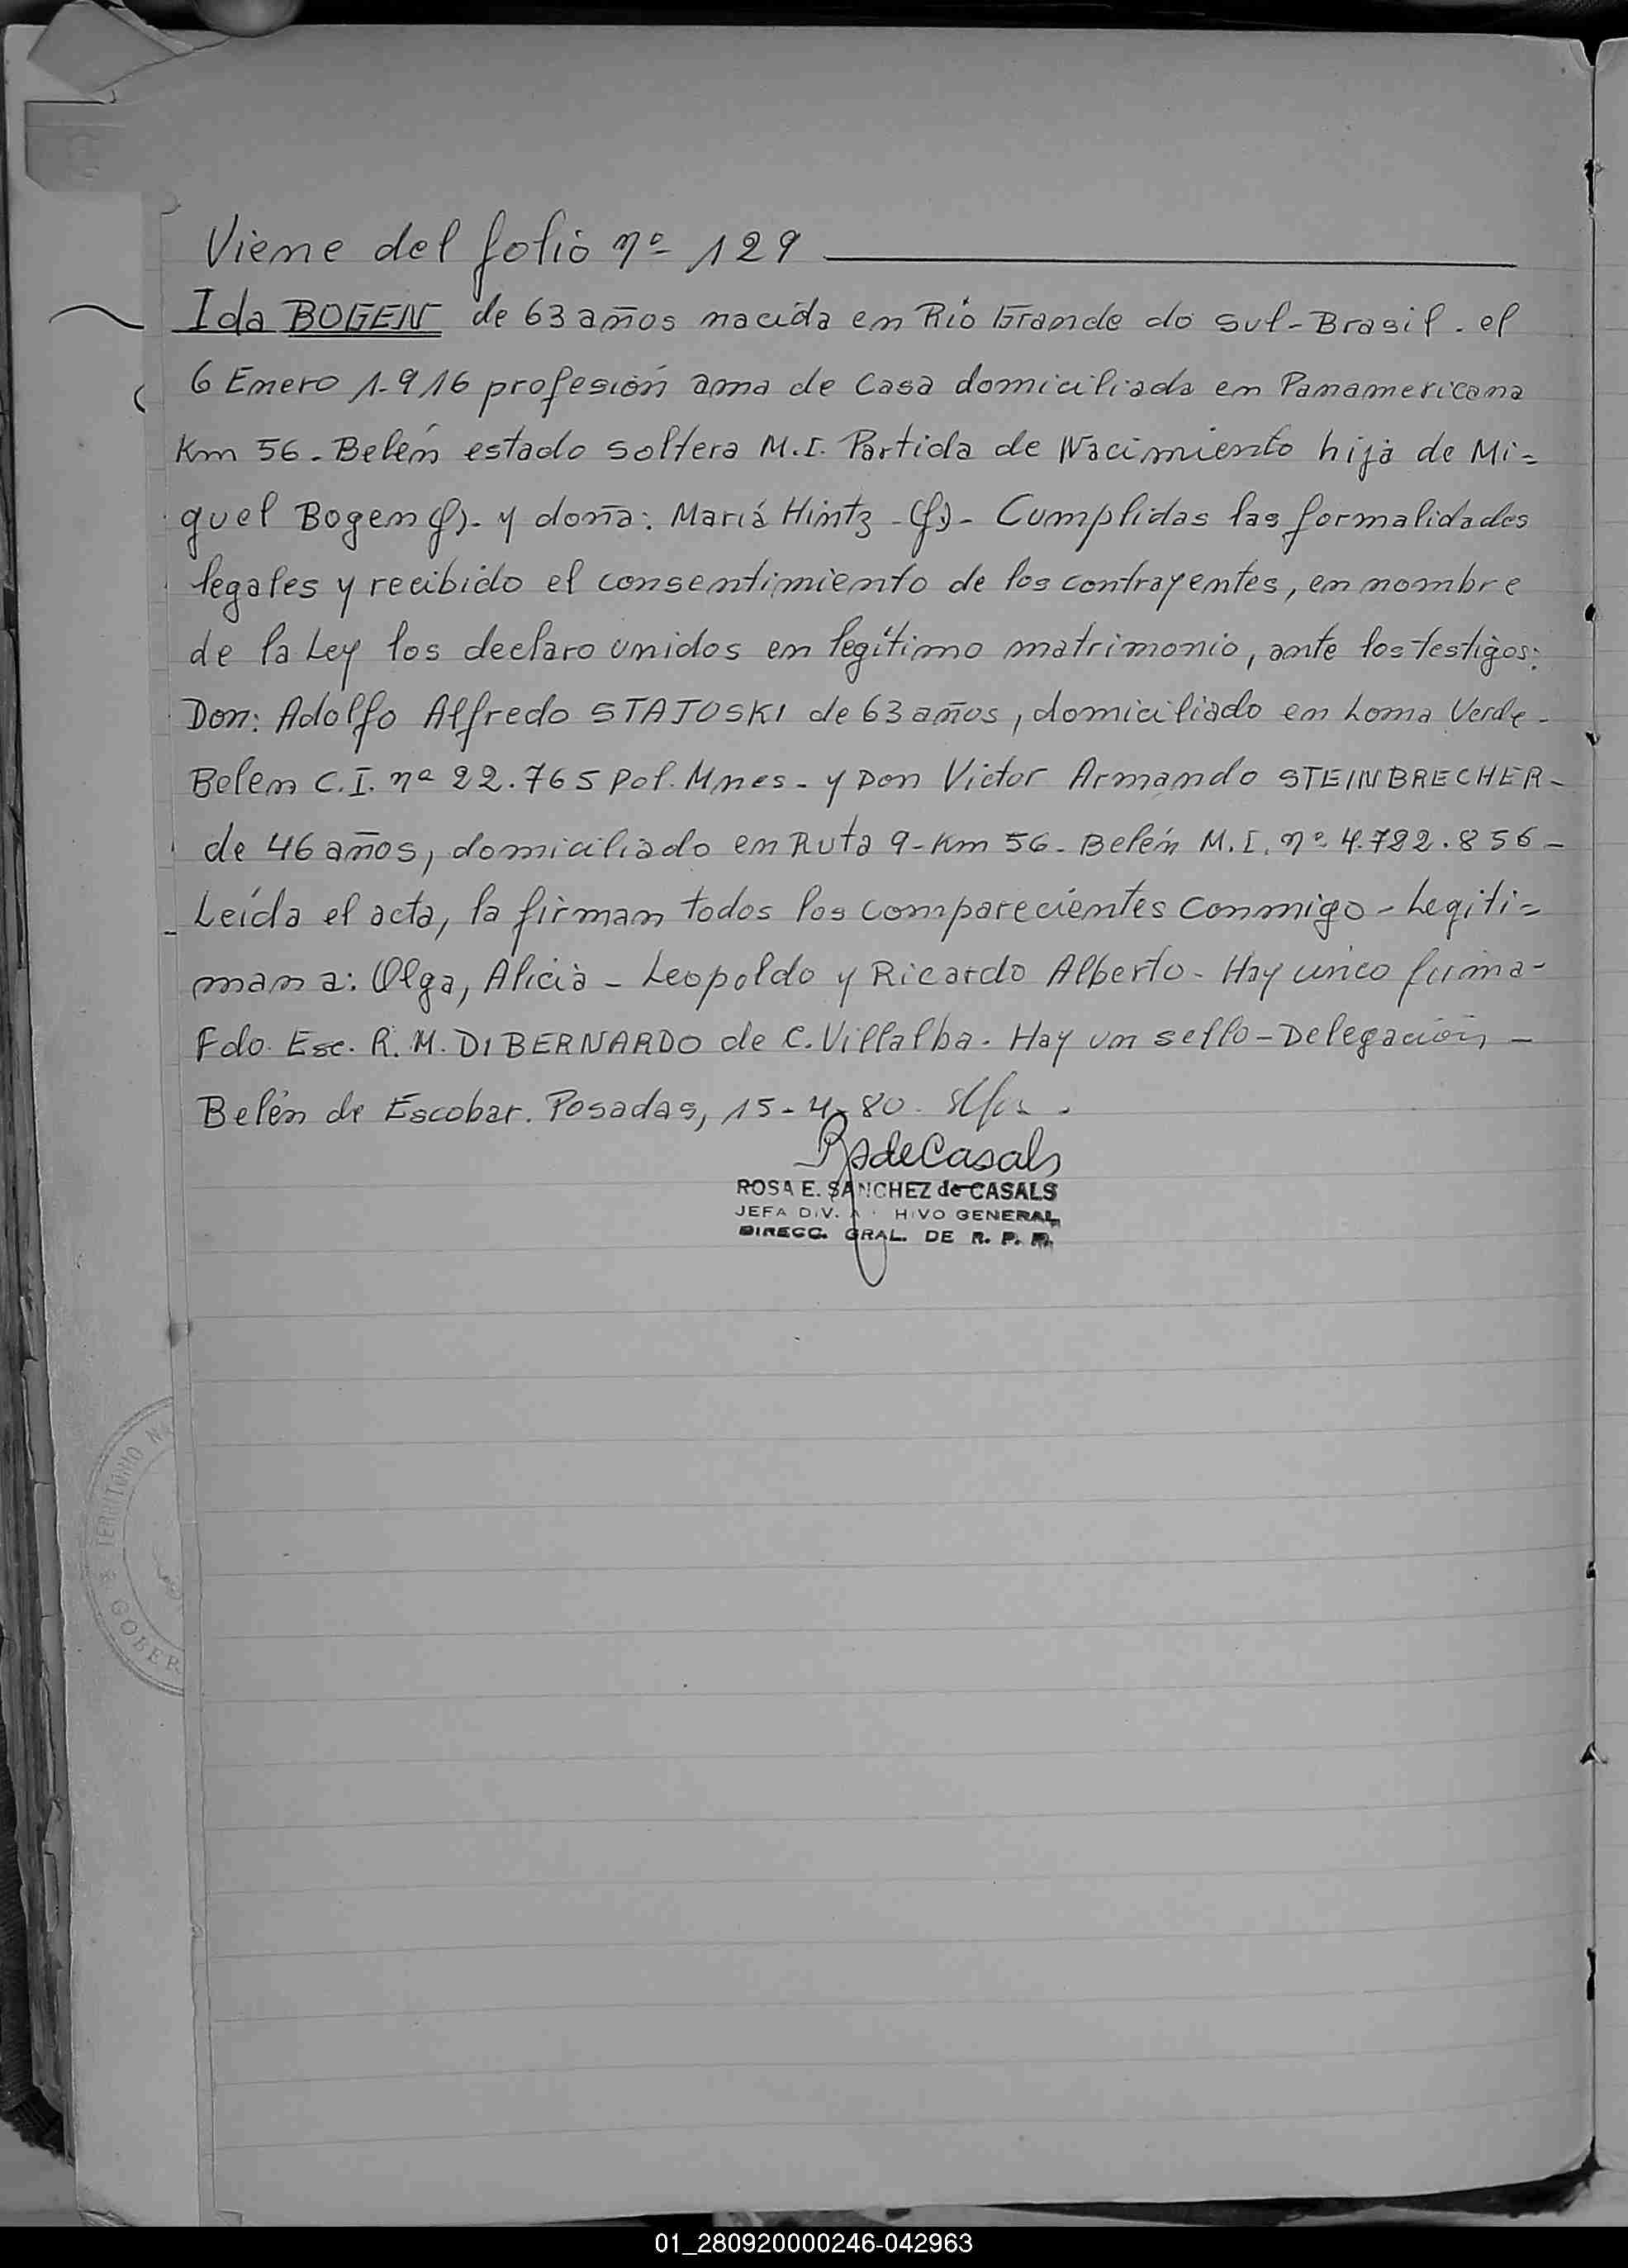 Viene del folio nº 129
Ida BOGEN de 63 años nacida en Río Grande do Sul-Brasil. el
6 Enero 1.916 profesión ama de casa domiciliada en Panamericana
Km 56. Belén estado soltera M.I. Partida de Nacimiento hija de Mi=
guel Bogen (f). y doña: María Hintz (f)- Cumplidas las formalidades
legales y recibido el consentimiento de los contrayentes, en nombre
de la Ley los declaro unidos en legítimo matrimonio, ante los testigos:
Don: Adolfo Alfredo STAJOSKI de 63 años, domiciliado en Loma Verde-
Belen C.I. nº 22.765 Pol. Mnes- y Don Victor Armando STEINBRECHER-
de 46 años, domiciliado en Ruta 9-Km 56- Belén M.I. nº 4.722.856-
Leída el acta, la firman todos los comparecientes conmigo- Legiti=
man a: Olga, Alicia - Leopoldo y Ricardo Alberto- Hay firma-
Fdo. Esc. R. M. DI BERNARDO de C. Villalba. Hay un sello-Delegación-
Belén de Escobar. Posadas, 15-4-80.
RSdeCasals
ROSA E. SANCHEZ de CASALS
JEFA DIV. A HIVO GENERAL
DIRECC. GRAL. DE R. P. P.
TERRITORIO N
GOBER
01_280920000246-042963